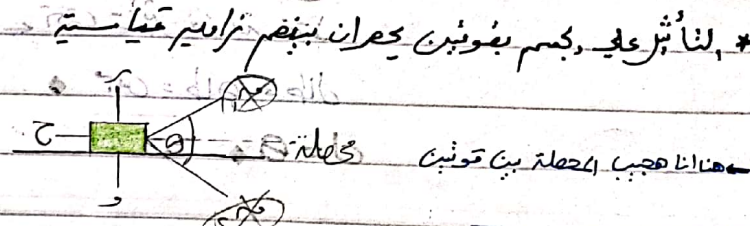 * التأثير على جسم بقوتين يحصران بينهم زاوية قياسية
ر
ح
هـ
محصلة
و
← هنا انا هجيب المحصلة بين قوتين